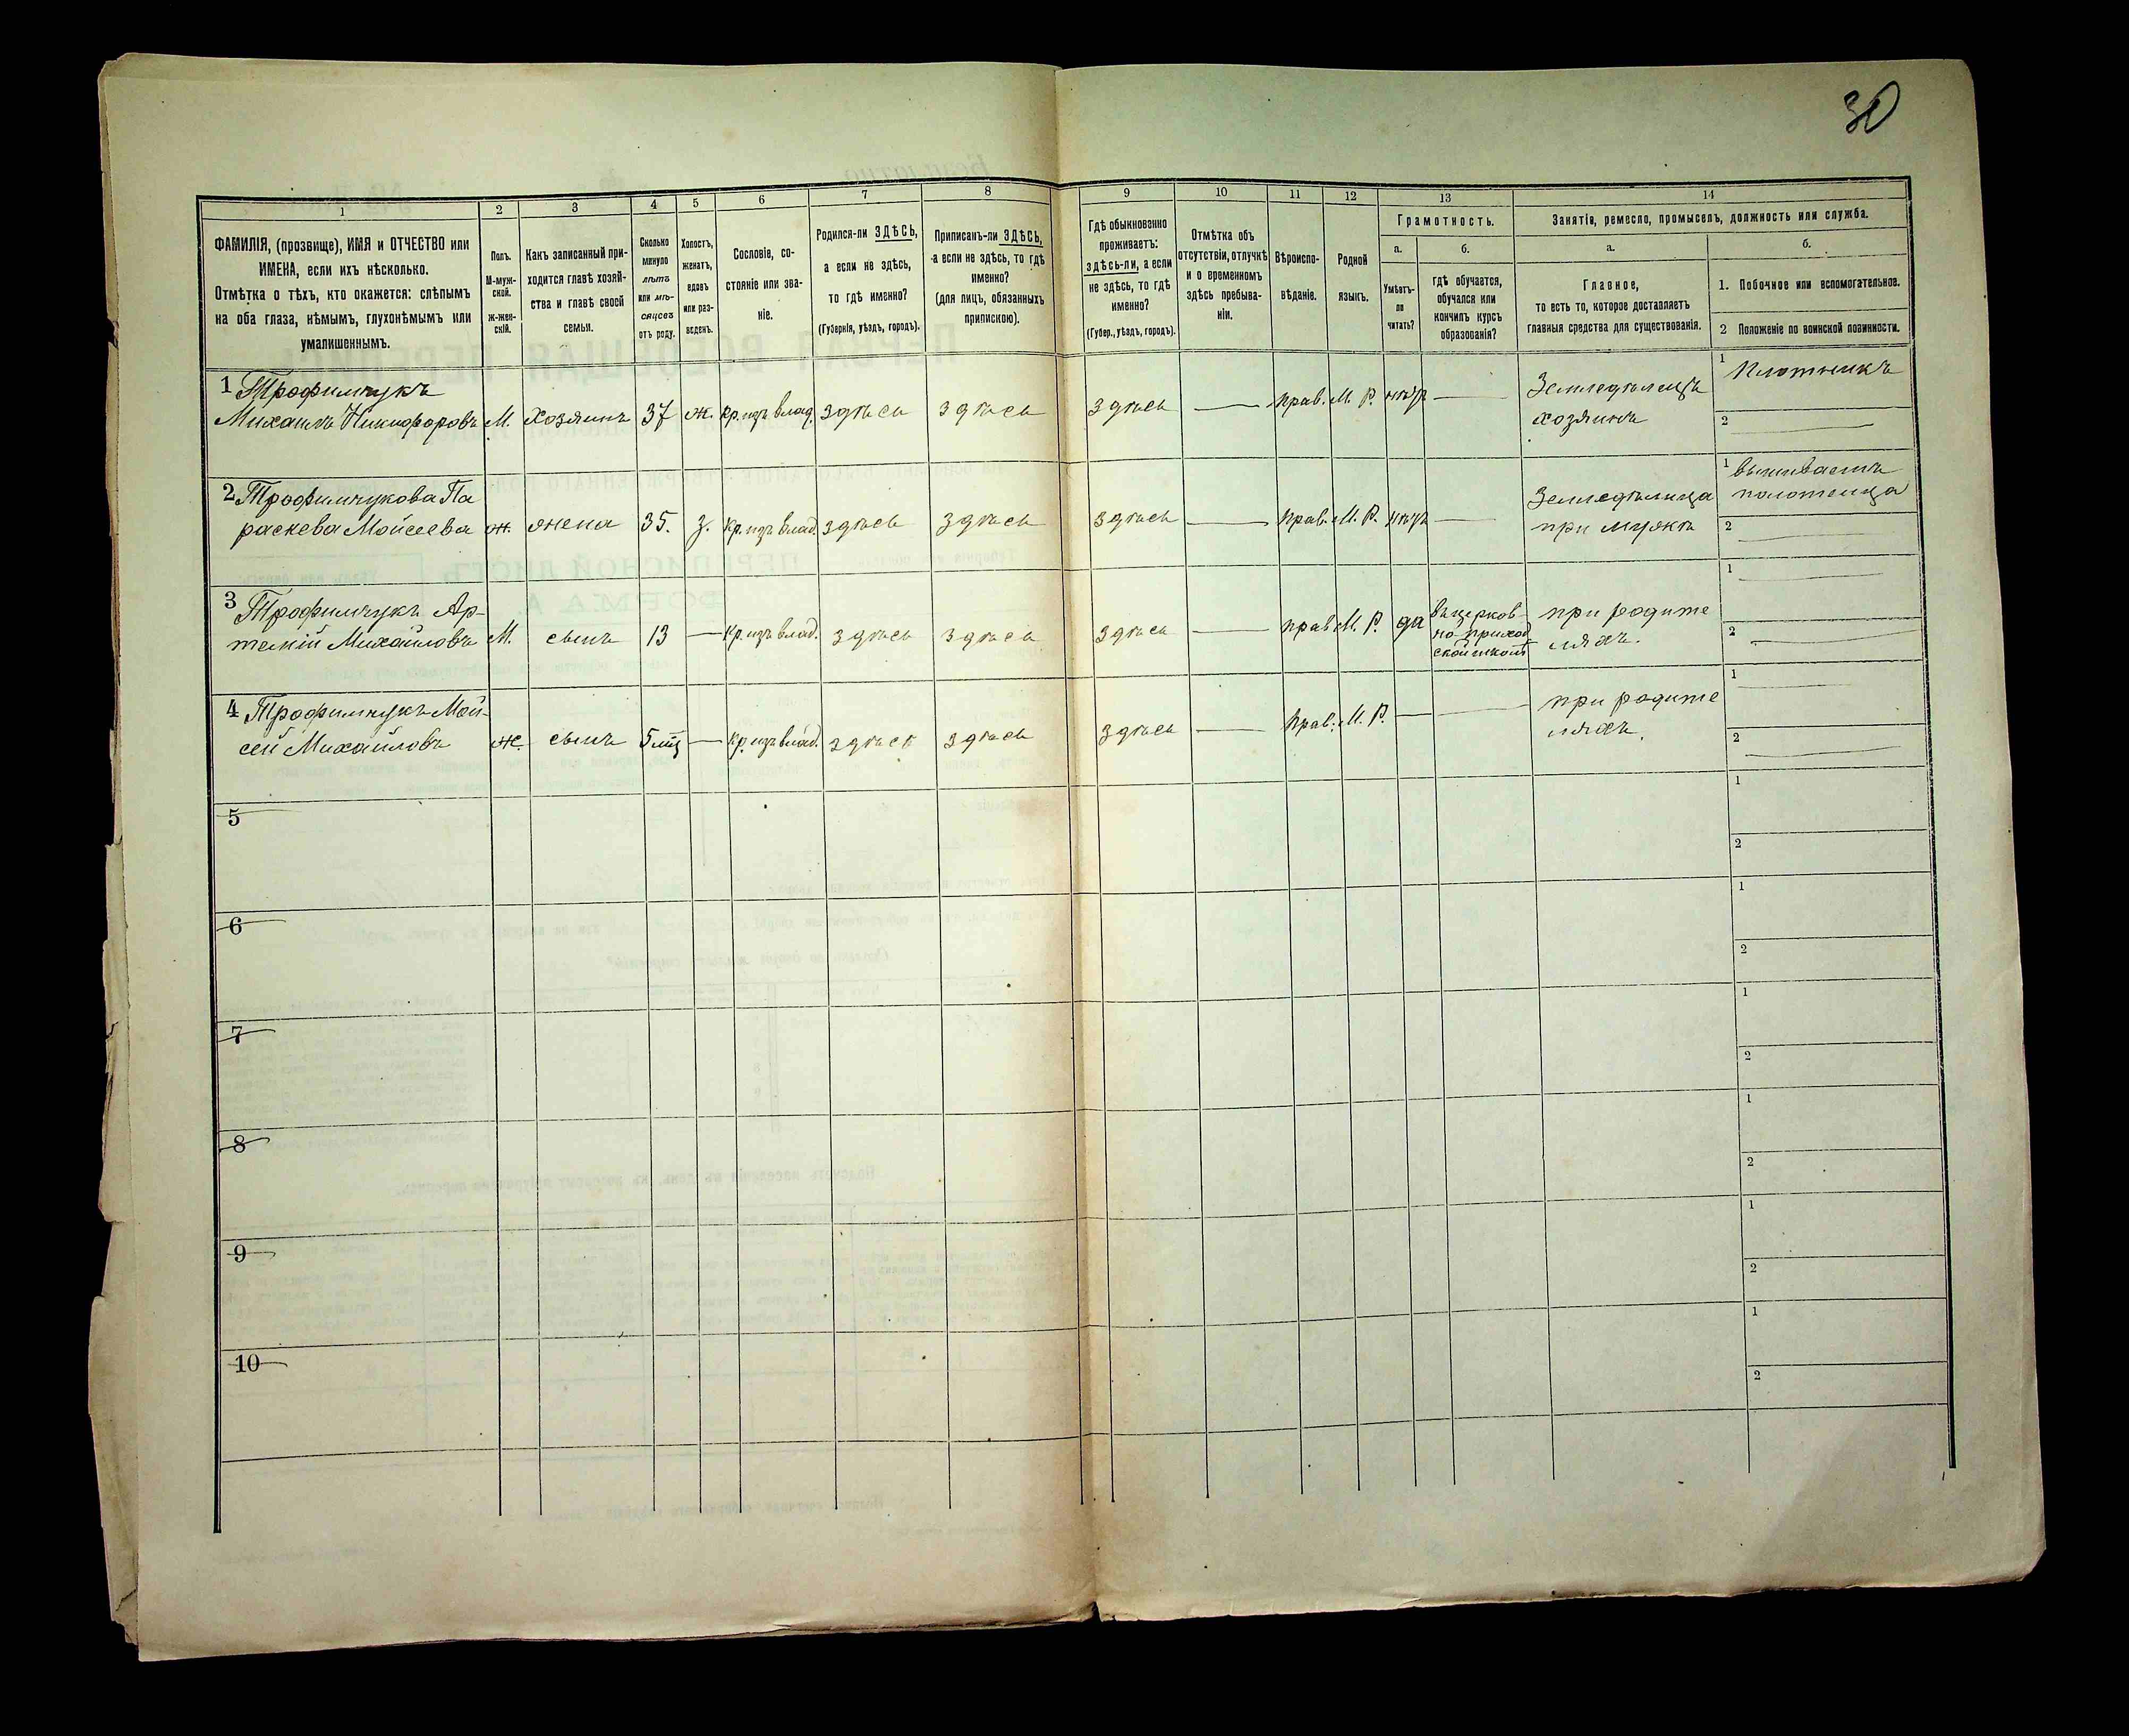 30
1 2 3 4 5 6 7 8 9 10 11 12 13 14
ФАМИЛІЯ, (прозвище), ИМЯ и ОТЧЕСТВО или
ИМЕНА, если ихъ нѣсколько.
Отмѣтка о тѣхъ, кто окажется: слѣпымъ
на оба глаза, нѣмымъ, глухонѣмымъ или
умалишеннымъ.
Полъ.
М-муж-
ской.
ж-жен-
скій.
Какъ записанный при-
ходится главѣ хозяй-
ства и главѣ своей
семьи.
Сколько
минуло
лѣтъ
или мѣ-
сяцевъ
отъ роду.
Холостъ,
женатъ,
вдовъ
или раз-
веденъ.
Сословіе, со-
стояніе или зва-
ніе.
Родился-ли ЗДѢСЬ,
а если не здѣсь,
то гдѣ именно?
(Губернія, уѣздъ, городъ).
Приписанъ-ли ЗДѢСЬ,
а если не здѣсь, то гдѣ
именно?
(для лицъ, обязанныхъ
припискою).
Гдѣ обыкновенно
проживаетъ:
здѣсь-ли, а если
не здѣсь, то гдѣ
именно?
(Губер., уѣздъ, городъ).
Отмѣтка объ
отсутствіи, отлучкѣ
и о временномъ
здѣсь пребыва-
ніи.
Вѣроиспо-
вѣданіе.
Родной
языкъ.
Грамотность.
а.
Умѣетъ-
ли
читать?
б.
гдѣ обучается,
обучался или
кончилъ курсъ
образованія?
Занятія, ремесло, промыселъ, должность или служба.
а.
Главное,
то есть то, которое доставляетъ
главныя средства для существованія.
б.
1. Побочное или вспомогательное.
2 Положеніе по воинской повинности.
1 Трофимчукъ
Михаилъ Никифоровъ М. Хозяинъ 37 ж. кр. изъ влад. здѣсь здѣсь здѣсь — прав. М. Р. нѣтъ —
Земледѣлецъ
хозяинъ
1 Плотникъ
2 —
2 Трофимчукова Па
раскева Мойсеева ж. жена 35. з. кр. изъ влад. здѣсь здѣсь здѣсь — прав. М. Р. нѣтъ —
Земледѣлица
при мужѣ
1 вышиваетъ
полотенца
2 —
3 Трофимчукъ Ар-
темій Михайловъ М. сынъ 13 — кр. изъ влад. здѣсь здѣсь здѣсь — прав. М. Р. да
въ церков-
но-приход
ской школѣ
при родите
ляхъ.
1 —
2 —
4 Трофимчукъ Мой-
сей Михайловъ ж. сынъ 5 мѣс — кр. изъ влад. здѣсь здѣсь здѣсь — прав. М. Р. — —
при родите
ляхъ.
1 —
2 —
5
1
2
6
1
2
7
1
2
8
1
2
9
1
2
10
1
2